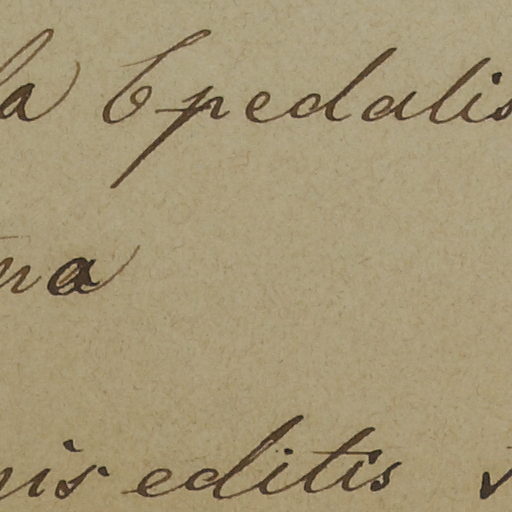 la 6pedalis
na
nis editis